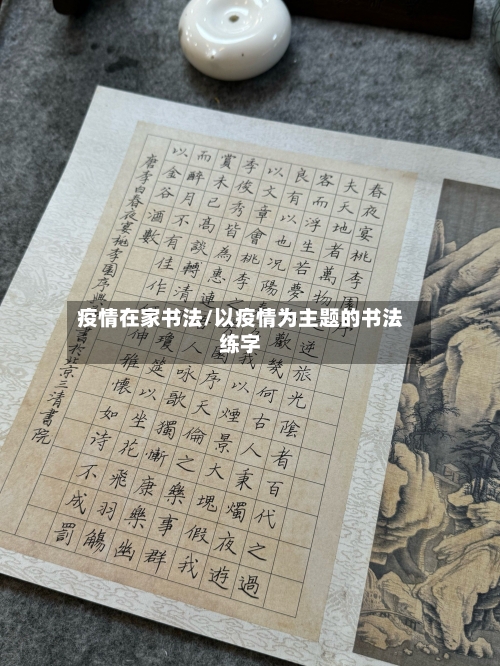 春夜宴桃李園序
夫天地者萬物逆旅光陰者百代之過
客而浮生若夢歡幾何古人秉燭夜遊
良有以也況陽春我以煙景大塊假我
以文章會桃李之園序天倫之樂事群
季俊秀皆為惠連人詠歌獨慚康樂幽
賞未已高談轉清瓊筵以坐花飛羽觴
而醉月不有佳作伸雅懷如詩不成罰
以金谷酒數
唐李白春夜宴桃李園序書於北京三清書院
疫情在家书法/以疫情为主题的书法
练字